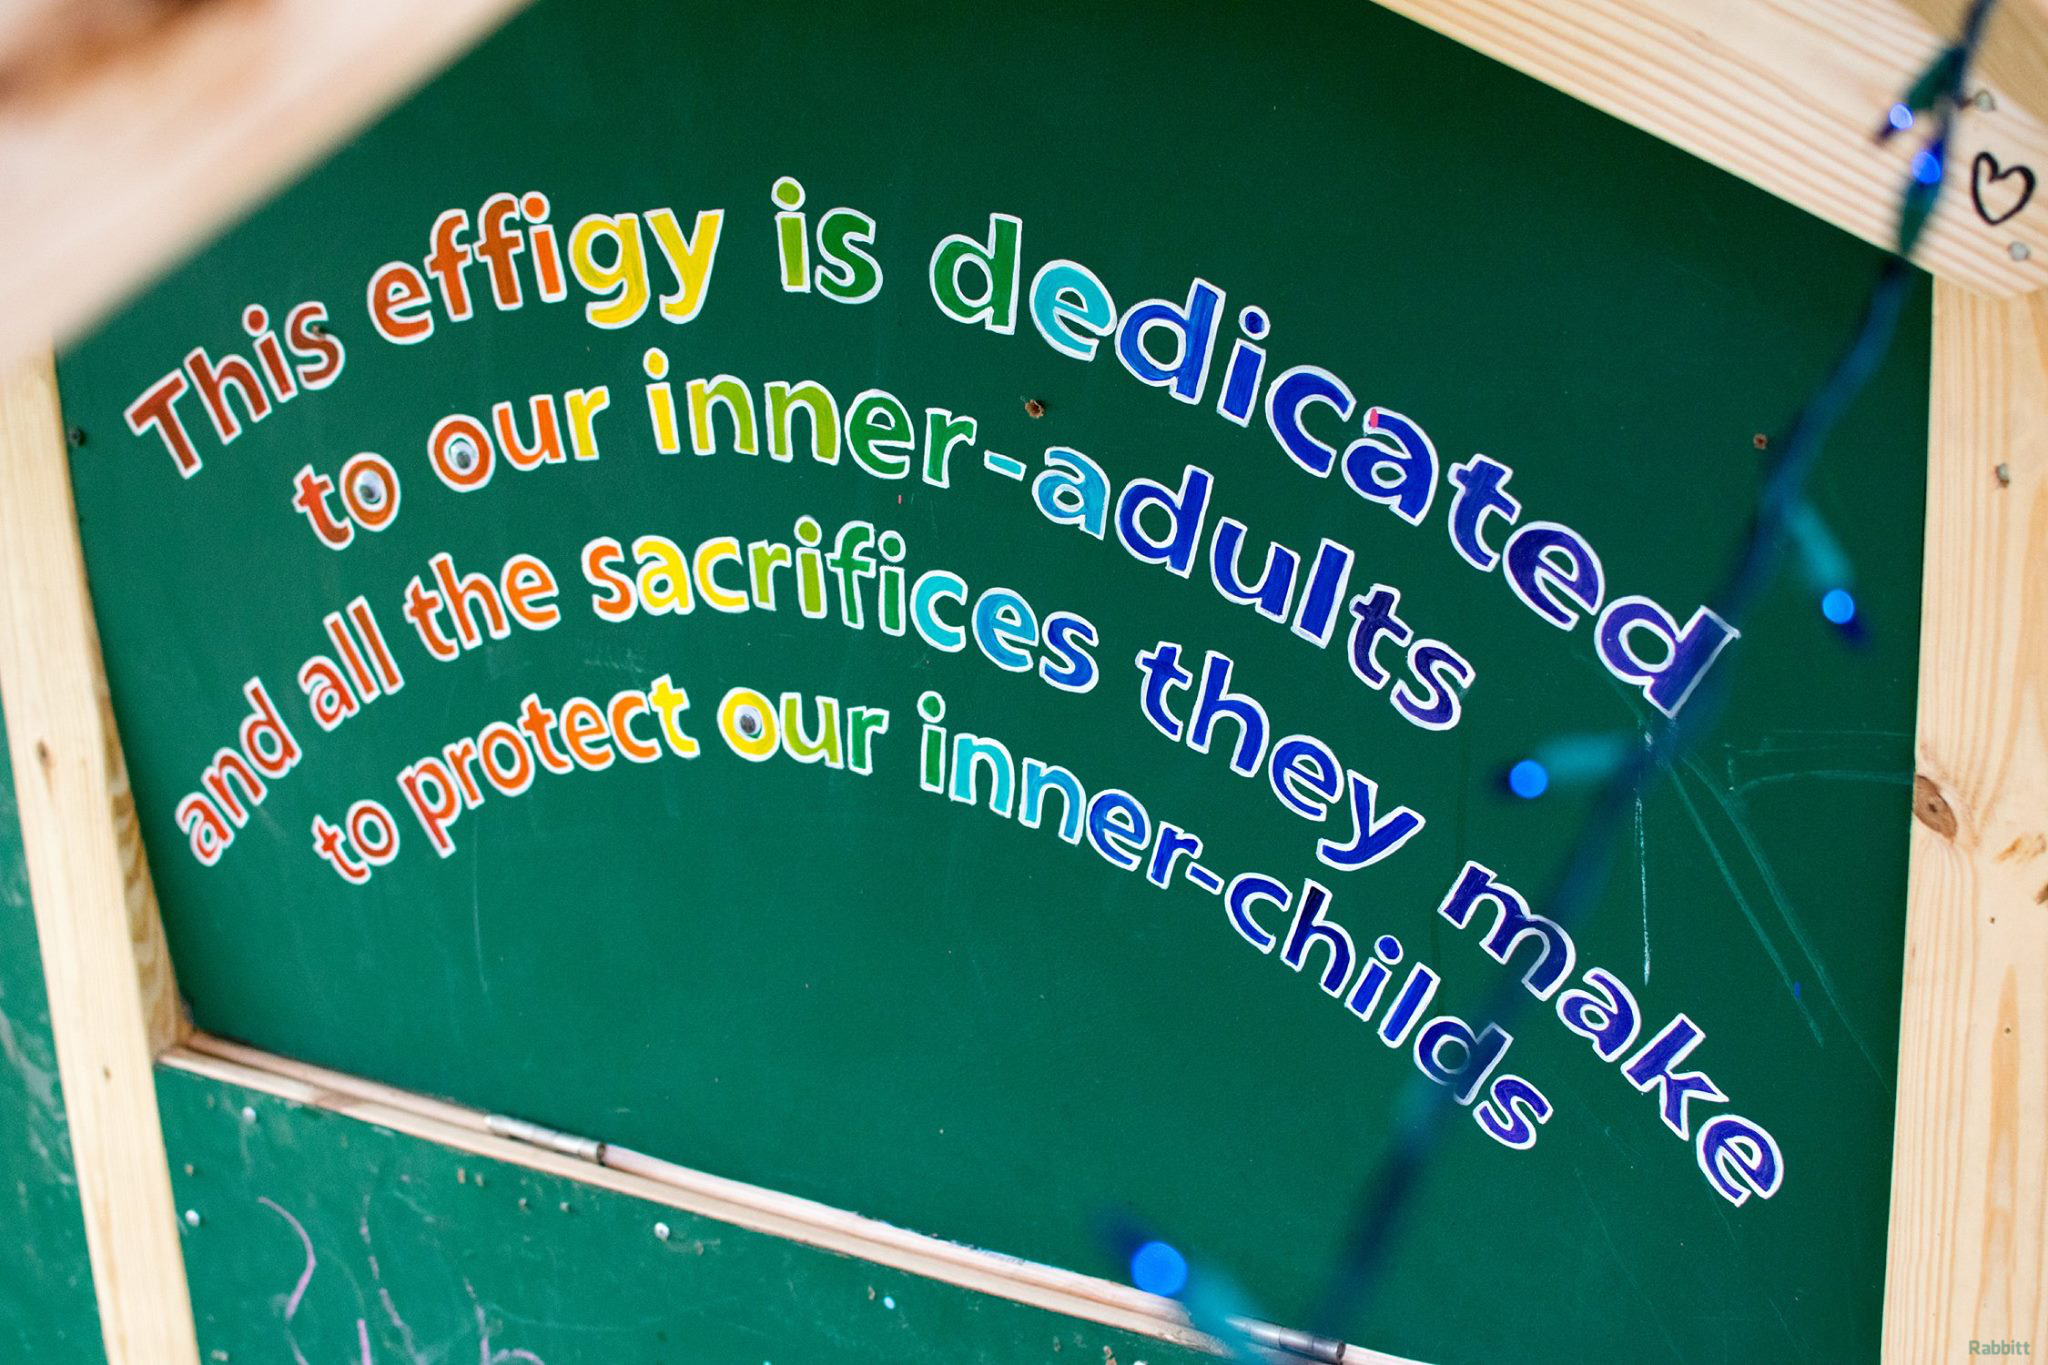 This effigy is dedicated
to our inner-adults
and all the sacrifices they make
to protect our inner-childs
Rabbitt